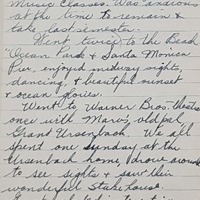 Music Classes. Was anxious
at the time to remain &
take last semester.
Went twice to the Beach
"Ocean Park & Santa Monica
Pier, enjoyed midway sight,
dancing, & beautiful sunset
& ocean glories.
Went to Warner Bros. theatre
once with Marv's old pal
Grant Ursenbach. We all
spent one Sunday at the
Ursenbach home, drove around
to see sights & saw their
wonderful Stake house.